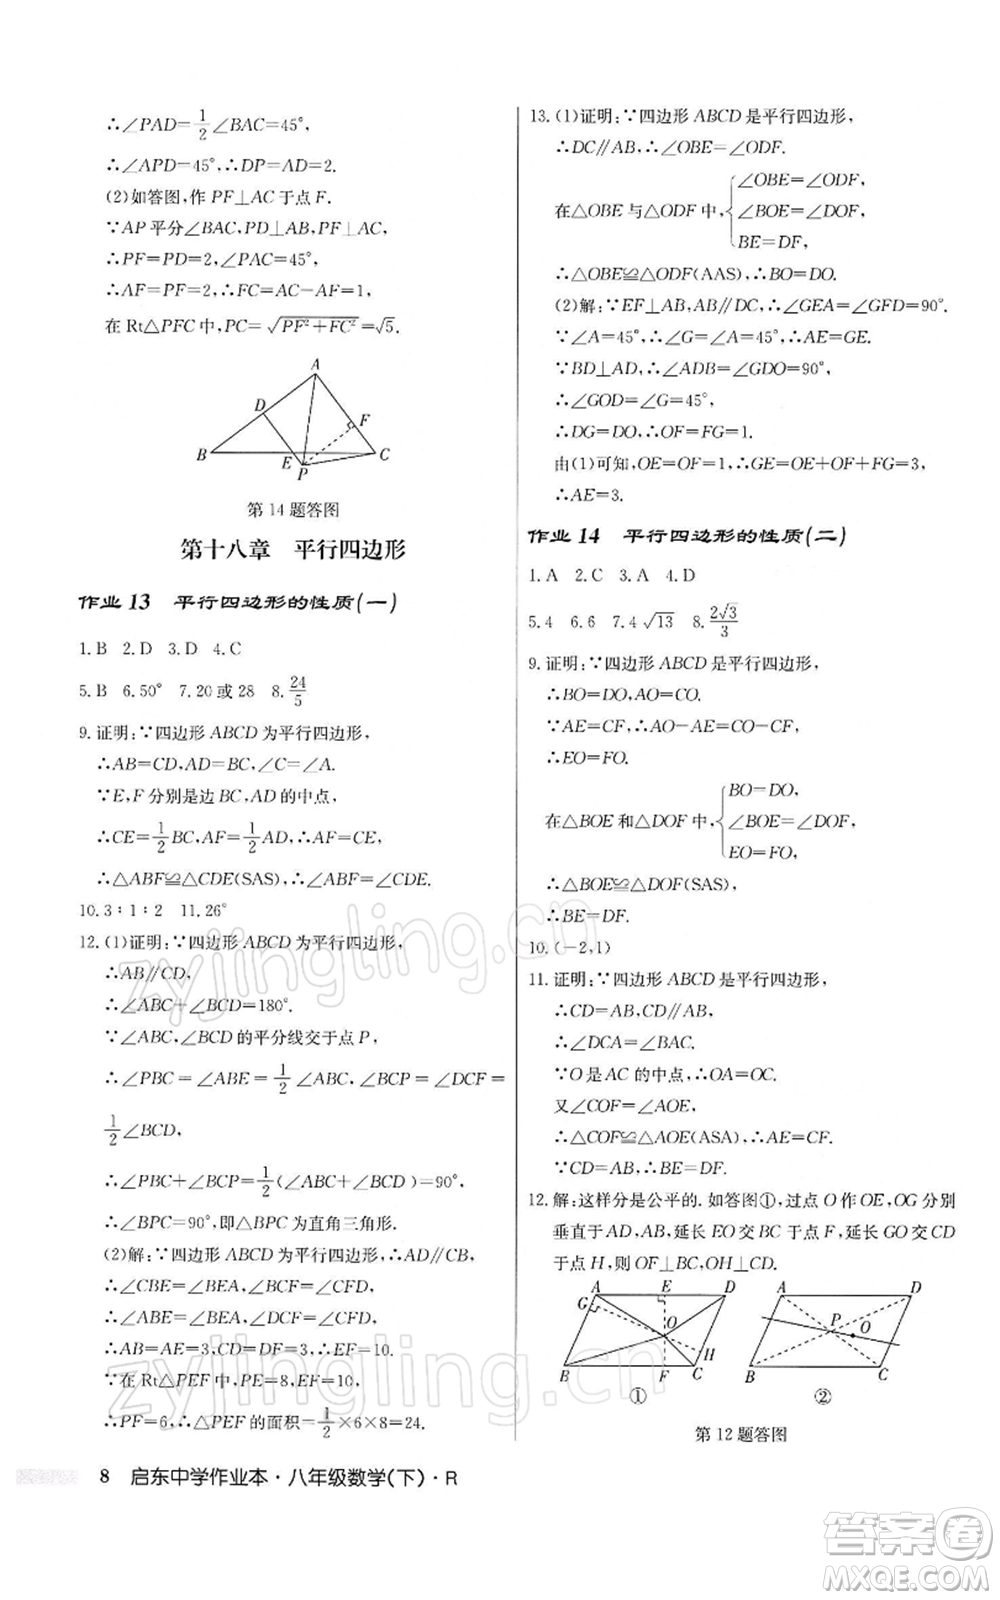 ∴∠PAD=1/2∠BAC=45°,
∴∠APD=45°,∴DP=AD=2.
(2)如答图,作 PF⊥AC 于点 F.
∵AP平分∠BAC,PD⊥AB,PF⊥AC,
∴PF=PD=2,∠PAC=45°,
∴AF=PF=2,∴FC=AC−AF=1,
在 Rt△PFC 中,PC=√(PF²+FC²)=√5.
A
D
F
B
E
P
C
第 14 题答图
第十八章 平行四边形
作业 13 平行四边形的性质(一)
1.B 2.D 3.D 4.C
5.B 6.50° 7.20 或 28 8.24/5
9.证明:∵四边形 ABCD 为平行四边形,
∴AB=CD,AD=BC,∠C=∠A.
∵E,F 分别是边 BC,AD 的中点,
∴CE=1/2BC,AF=1/2AD,∴AF=CE,
∴△ABF≌△CDE(SAS),∴∠ABF=∠CDE.
10.3∶1∶2 11.26°
12.(1)证明:∵四边形 ABCD 为平行四边形,
∴AB∥CD,
∴∠ABC+∠BCD=180°.
∵∠ABC,∠BCD 的平分线交于点 P,
∴∠PBC=∠ABE=1/2∠ABC,∠BCP=∠DCF=
1/2∠BCD,
∴∠PBC+∠BCP=1/2(∠ABC+∠BCD)=90°,
∴∠BPC=90°,即△BPC 为直角三角形.
(2)解:∵四边形 ABCD 为平行四边形,∴AD∥CB,
∴∠CBE=∠BEA,∠BCF=∠CFD,
∴∠ABE=∠BEA,∠DCF=∠CFD,
∴AB=AE=3,CD=DF=3,∴EF=10.
∵在 Rt△PEF 中,PE=8,EF=10,
∴PF=6,∴△PEF 的面积=1/2×6×8=24.
8 启东中学作业本·八年级数学(下)·R
13.(1)证明:∵四边形 ABCD 是平行四边形,
∴DC∥AB,∴∠OBE=∠ODF.
在△OBE 与△ODF 中,{∠OBE=∠ODF,
∠BOE=∠DOF,
BE=DF,
∴△OBE≌△ODF(AAS),∴BO=DO.
(2)解:∵EF⊥AB,AB∥DC,∴∠GEA=∠GFD=90°.
∵∠A=45°,∴∠G=∠A=45°,∴AE=GE.
∵BD⊥AD,∴∠ADB=∠GDO=90°,
∴∠GOD=∠G=45°,
∴DG=DO,∴OF=FG=1.
由(1)可知,OE=OF=1,∴GE=OE+OF+FG=3,
∴AE=3.
作业 14 平行四边形的性质(二)
1.A 2.C 3.A 4.D
5.4 6.6 7.4√13 8.2√3/3
9.证明:∵四边形 ABCD 是平行四边形,
∴BO=DO,AO=CO.
∵AE=CF,∴AO−AE=CO−CF,
∴EO=FO.
在△BOE 和△DOF 中,{BO=DO,
∠BOE=∠DOF,
EO=FO,
∴△BOE≌△DOF(SAS),
∴BE=DF.
10.(−2,1)
11.证明:∵四边形 ABCD 是平行四边形,
∴CD=AB,CD∥AB,
∴∠DCA=∠BAC.
∵O 是 AC 的中点,∴OA=OC.
又∠COF=∠AOE,
∴△COF≌△AOE(ASA),∴AE=CF.
∵CD=AB,∴BE=DF.
12.解:这样分是公平的.如答图①,过点 O 作 OE,OG 分别
垂直于 AD,AB,延长 EO 交 BC 于点 F,延长 GO 交 CD
于点 H,则 OF⊥BC,OH⊥CD.
A
E
D
G
O
H
B
F
C
①
A
D
P
O
B
C
②
第 12 题答图
zyjingling.cn
zyjingling.cn
答案卷
MXQE.COM